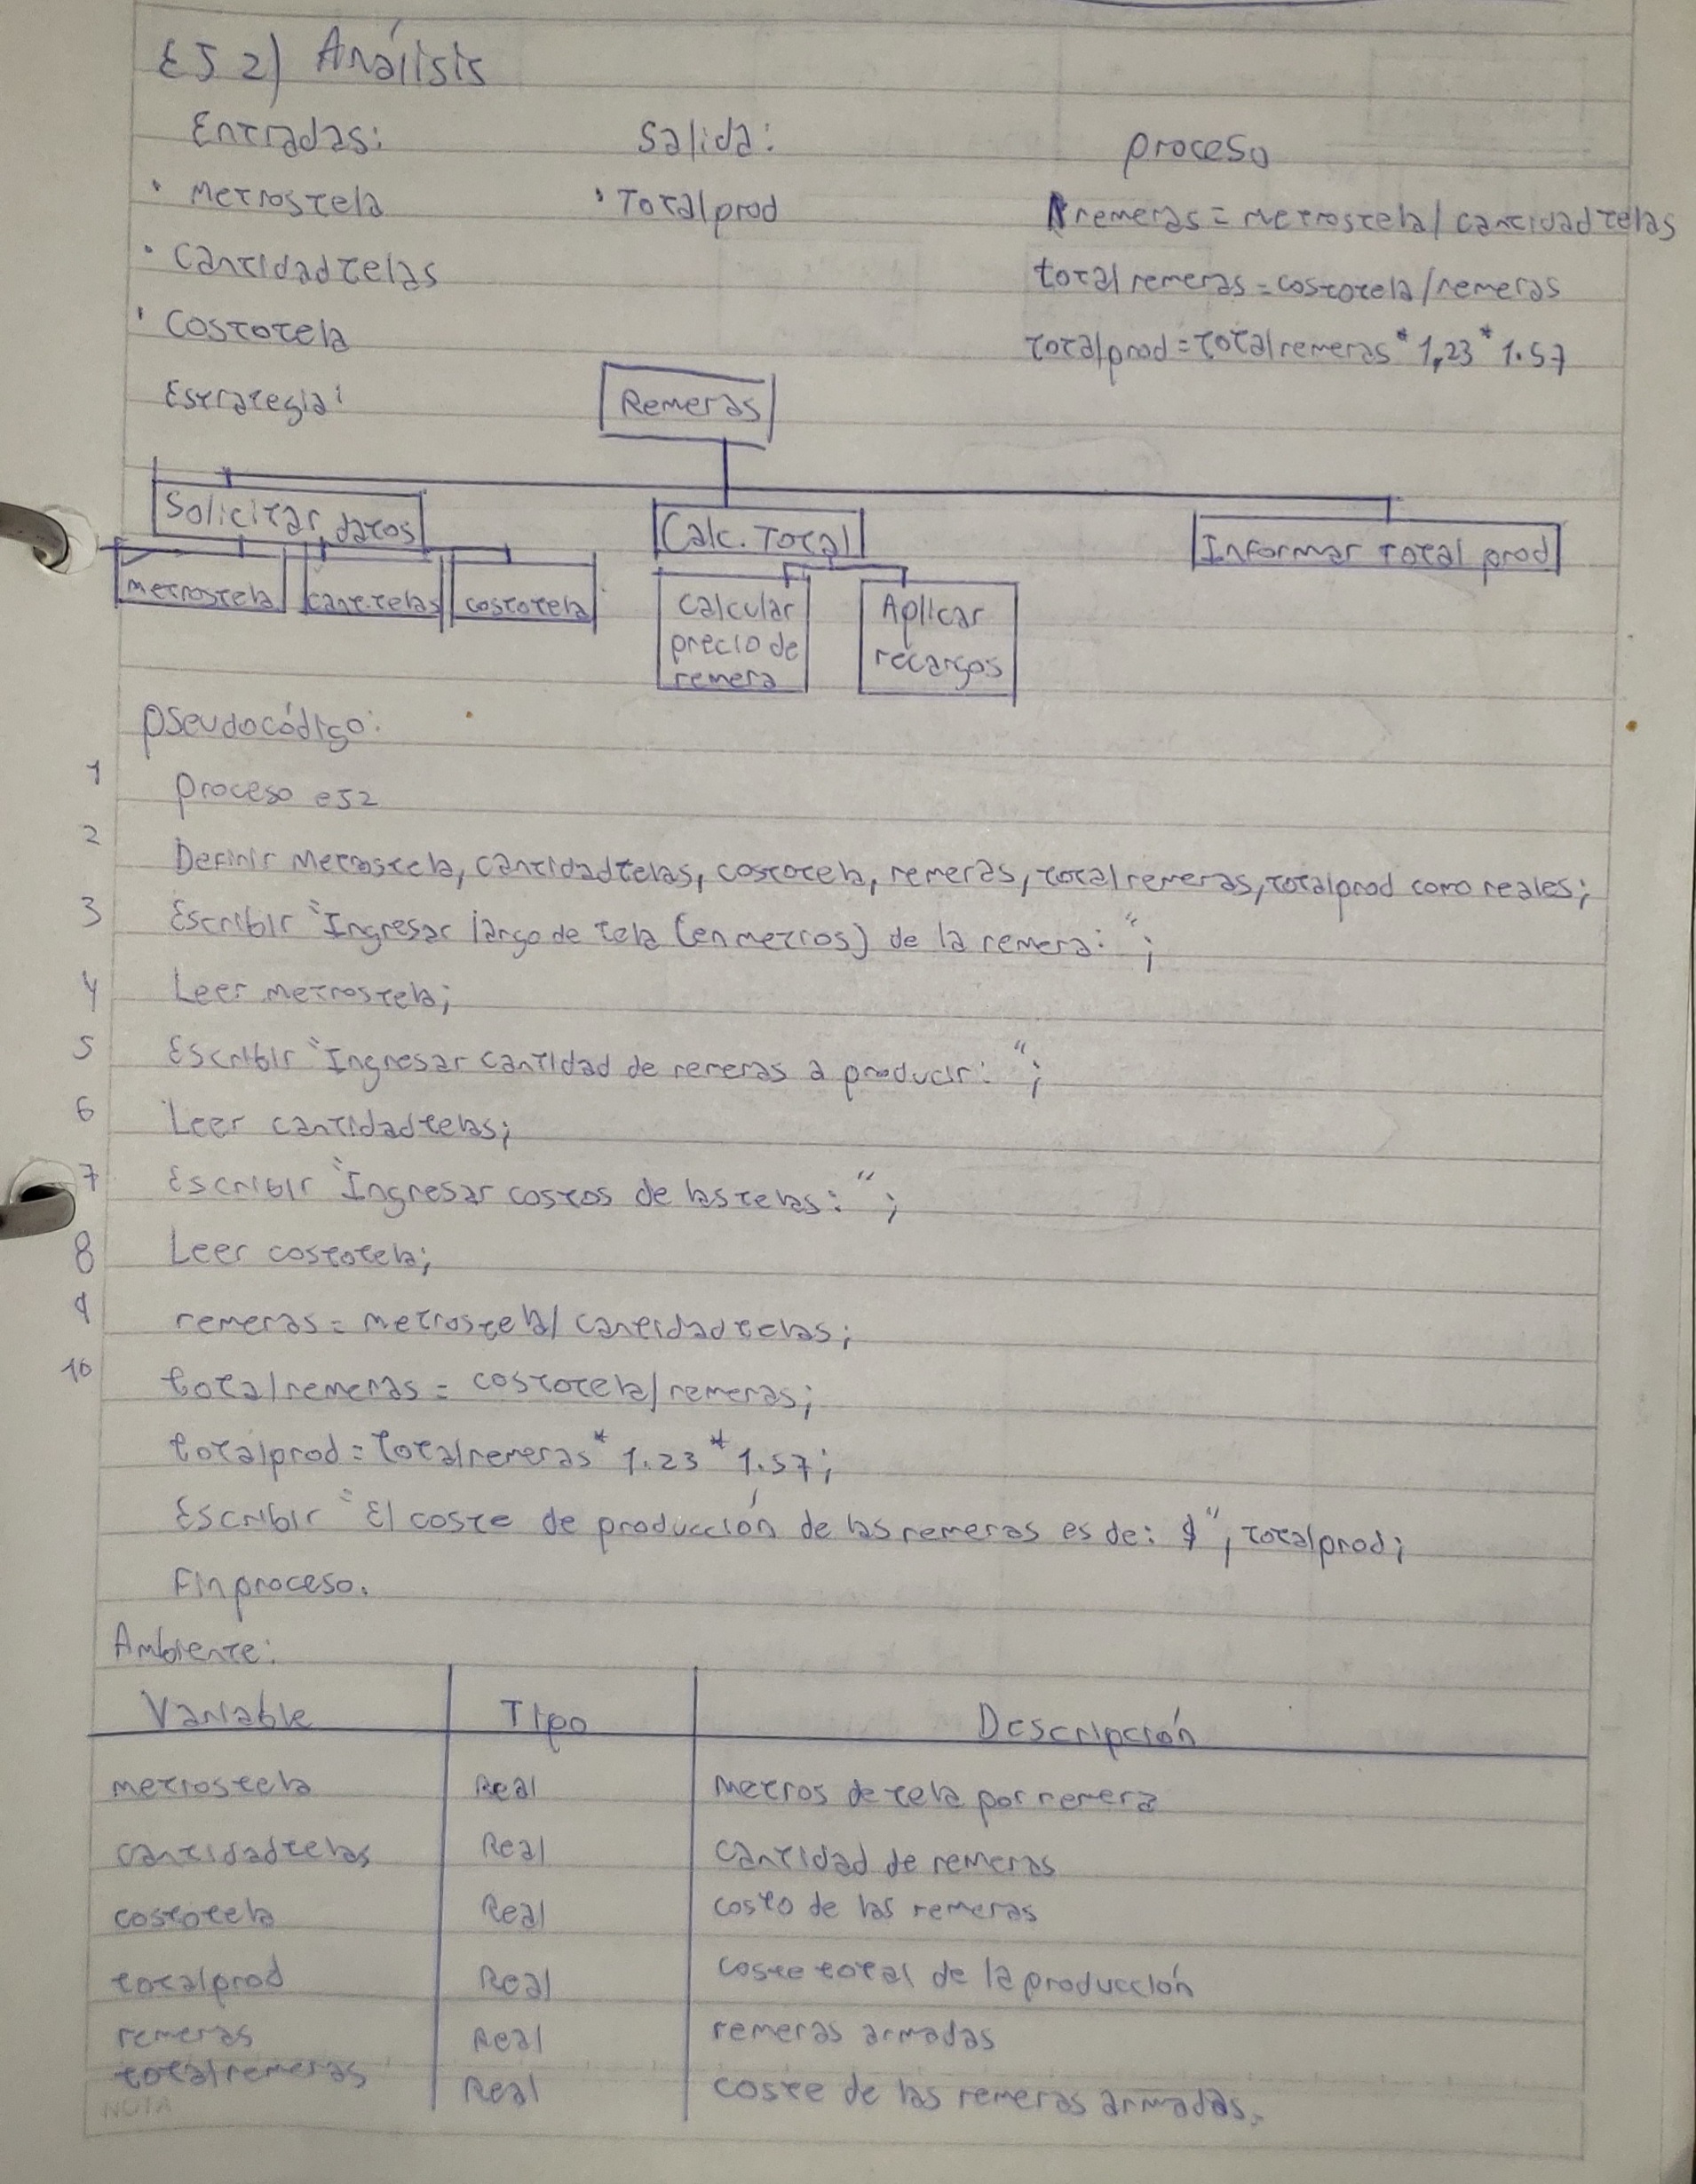 EJ 2) Análisis
Entradas: Salida: proceso
• Metrostela • Totalprod remeras = metrostela / cantidadtelas
• Cantidadtelas total remeras = costotela / remeras
• Costotela totalprod = totalremeras * 1,23 * 1.57
Estrategia:
Remeras
Solicitar datos Calc. Total Informar total prod
metrostela cant.telas costotela Calcular precio de remera Aplicar recargos
pseudocódigo:
1 proceso ej2
2 Definir metrostela, cantidadtelas, costotela, remeras, totalremeras, totalprod como reales;
3 Escribir "Ingresar largo de tela (en metros) de la remera: ";
4 Leer metrostela;
5 Escribir "Ingresar cantidad de remeras a producir: ";
6 Leer cantidadtelas;
7 Escribir "Ingresar costos de las telas: ";
8 Leer costotela;
9 remeras = metrostela / cantidadtelas;
10 totalremeras = costotela / remeras;
totalprod = totalremeras * 1.23 * 1.57;
Escribir "El coste de producción de las remeras es de: $", totalprod;
Finproceso.
Ambiente:
Variable Tipo Descripción
metrostela Real Metros de tela por remera
cantidadtelas Real cantidad de remeras
costotela Real costo de las remeras
totalprod Real coste total de la producción
remeras Real remeras armadas
totalremeras Real coste de las remeras armadas.
NOTA